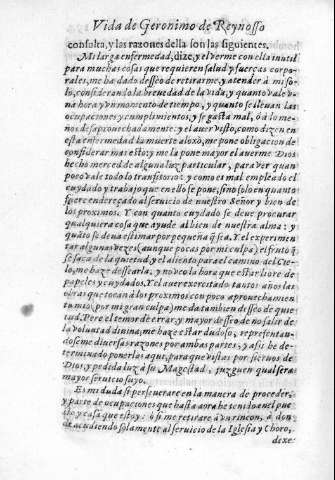 Vida de Geronimo de Reynosso
consulta, y las razones della son las siguientes.
Mi larga enfermedad, dize, y el verme con ella inutil
para muchas cosas que requieren salud y fuerças corpo-
rales, me ha dado desseo de retirarme, y atender à mi so-
lo, considerando la breuedad de la vida, y quanto vale v-
na hora y vn momento de tiempo, y quanto se lleuan las
ocupaciones y cumplimientos, y se gasta mal, ò à lo me-
nos desaprouechadamente: y el auer visto, como dizen en
esta enfermedad la muerte al oxo, me pone obligacion de
considerar mas esto: y me la pone mayor el auerme Dios
hecho merced de alguna luz particular, para ver quan
poco vale todo lo transitorio: y como es mal empleado el
cuydado y trabajo que en ello se pone, sino solo en quanto
fuere endereçado al seruicio de nuestro Señor y bien de
los proximos. Y con quanto cuydado se deue procurar
qualquiera cosa que ayude al bien de nuestra alma: y
quãto se deua estimar por pequeña q̃ sea. Y el experimen-
tar algunas vezes (aunque pocas por mi culpa) el fruto q̃
se saca de la quietud, y el aliento para el camino del Cie-
lo, me haze dessearla, y no veo la hora que estar libre de
papeles y cuydados. Y el auer exercitado tantos años las
obras que tocan à los proximos con poco aprouechamien
to mio (por mi gran culpa) me da tambien desseo de quie-
tud. Pero el temor de errar, y mayor desseo de no salir de
la voluntad diuina, me haze estar dudoso, representan-
doseme diuersas razones por ambas partes, y assi he de-
terminado ponerlas aqui, para que vistas por sieruos de
Dios y pedida luz à su Magestad, juzguen qual sera
mayor seruicio suyo.
Es mi duda si perseuerare en la manera de proceder,
y parte de ocupaciones que hasta aora he tenido en el pue-
blo y casa que estoy: ò si me retirare à vn rincon, à don
de acudiendo solamente al seruicio de la Iglesia y Choro,
dexe